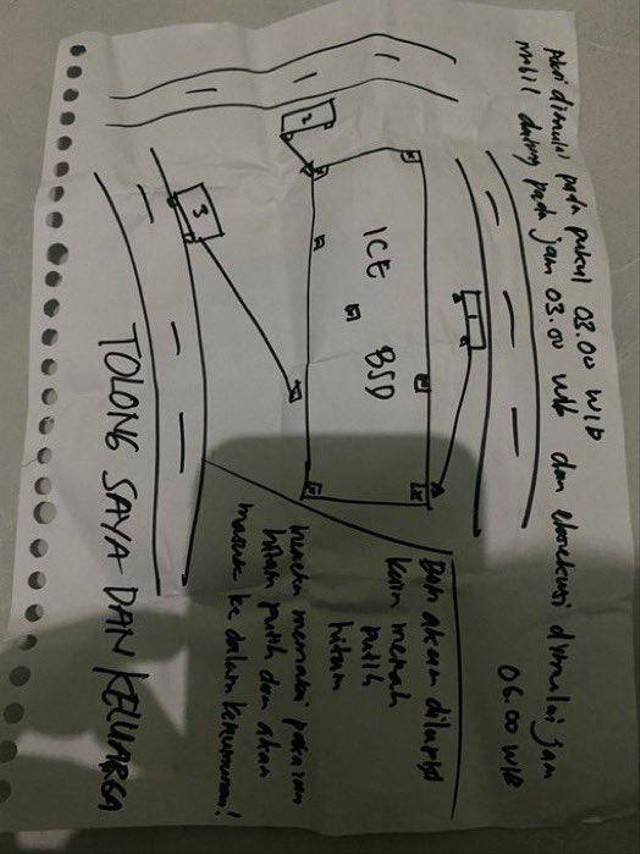 Aksi dimulai pada pukul 03.00 WIB
mobil datang pada jam 03.00 wib dan eksekusi dimulai jam
06.00 WIB
2
1
ICE BSD
3
Bom akan dilapisi
kain merah
putih
hitam
mereka memakai pakaian
hitam putih dan akan
masuk ke dalam kerumunan!
TOLONG SAYA DAN KELUARGA